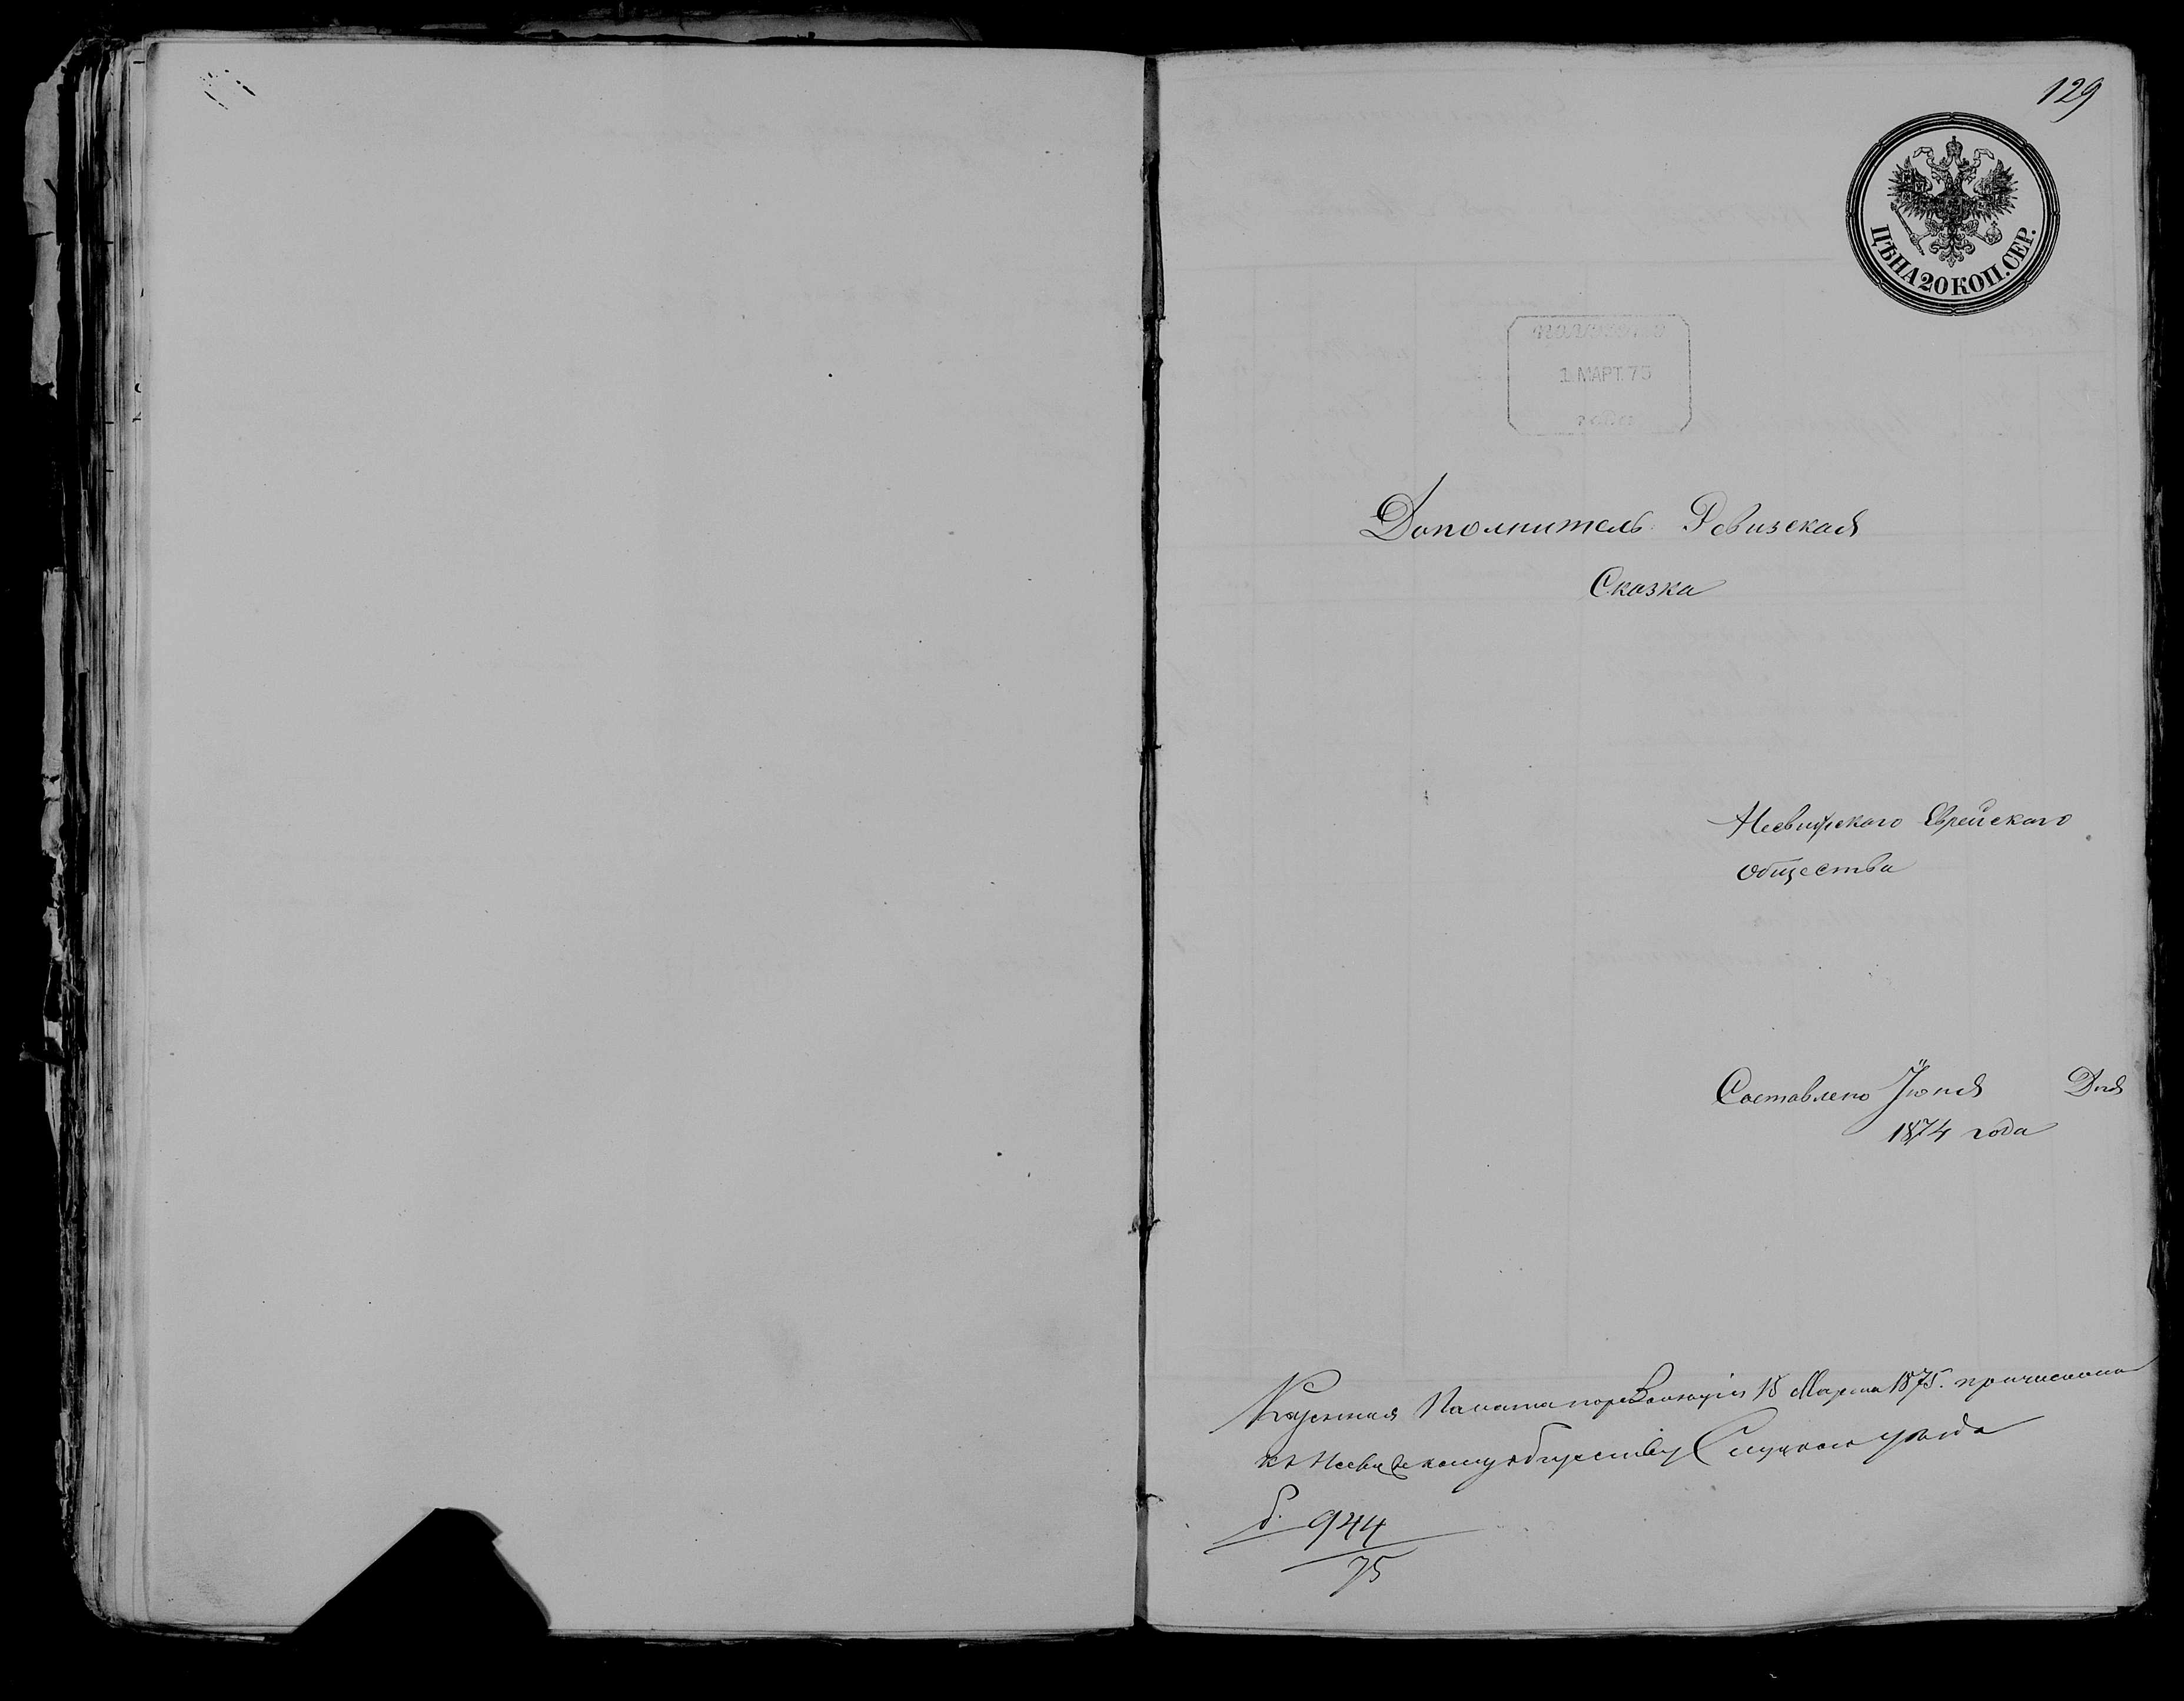 129
ЦѢНА 20 КОП. СЕР.
1 МАРТ. 75
Дополнитель: Ревизская
Сказка
Несвижскаго Еврейскаго
Общества
Составлено Іюня Дня
1874 года
Казенная Палата по резолюціи 18 Марта 1875. причислила
къ Несвижскому обществу Слуцкаго уѣзда
944
75